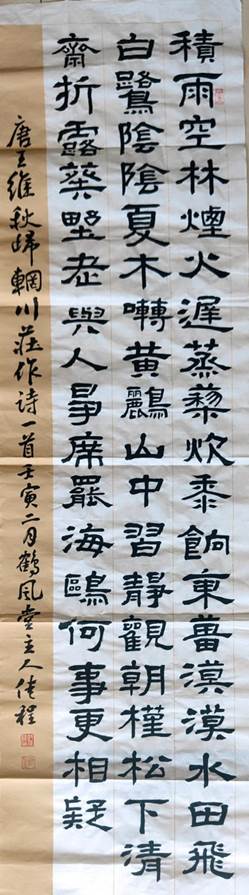 積雨空林煙火遲蒸藜炊黍餉東菑漠漠水田飛
白鷺陰陰夏木囀黃鸝山中習靜觀朝槿松下清
齋折露葵野老與人爭席罷海鷗何事更相疑
唐王維秋歸輞川莊作詩一首壬寅二月鶴風堂主人程